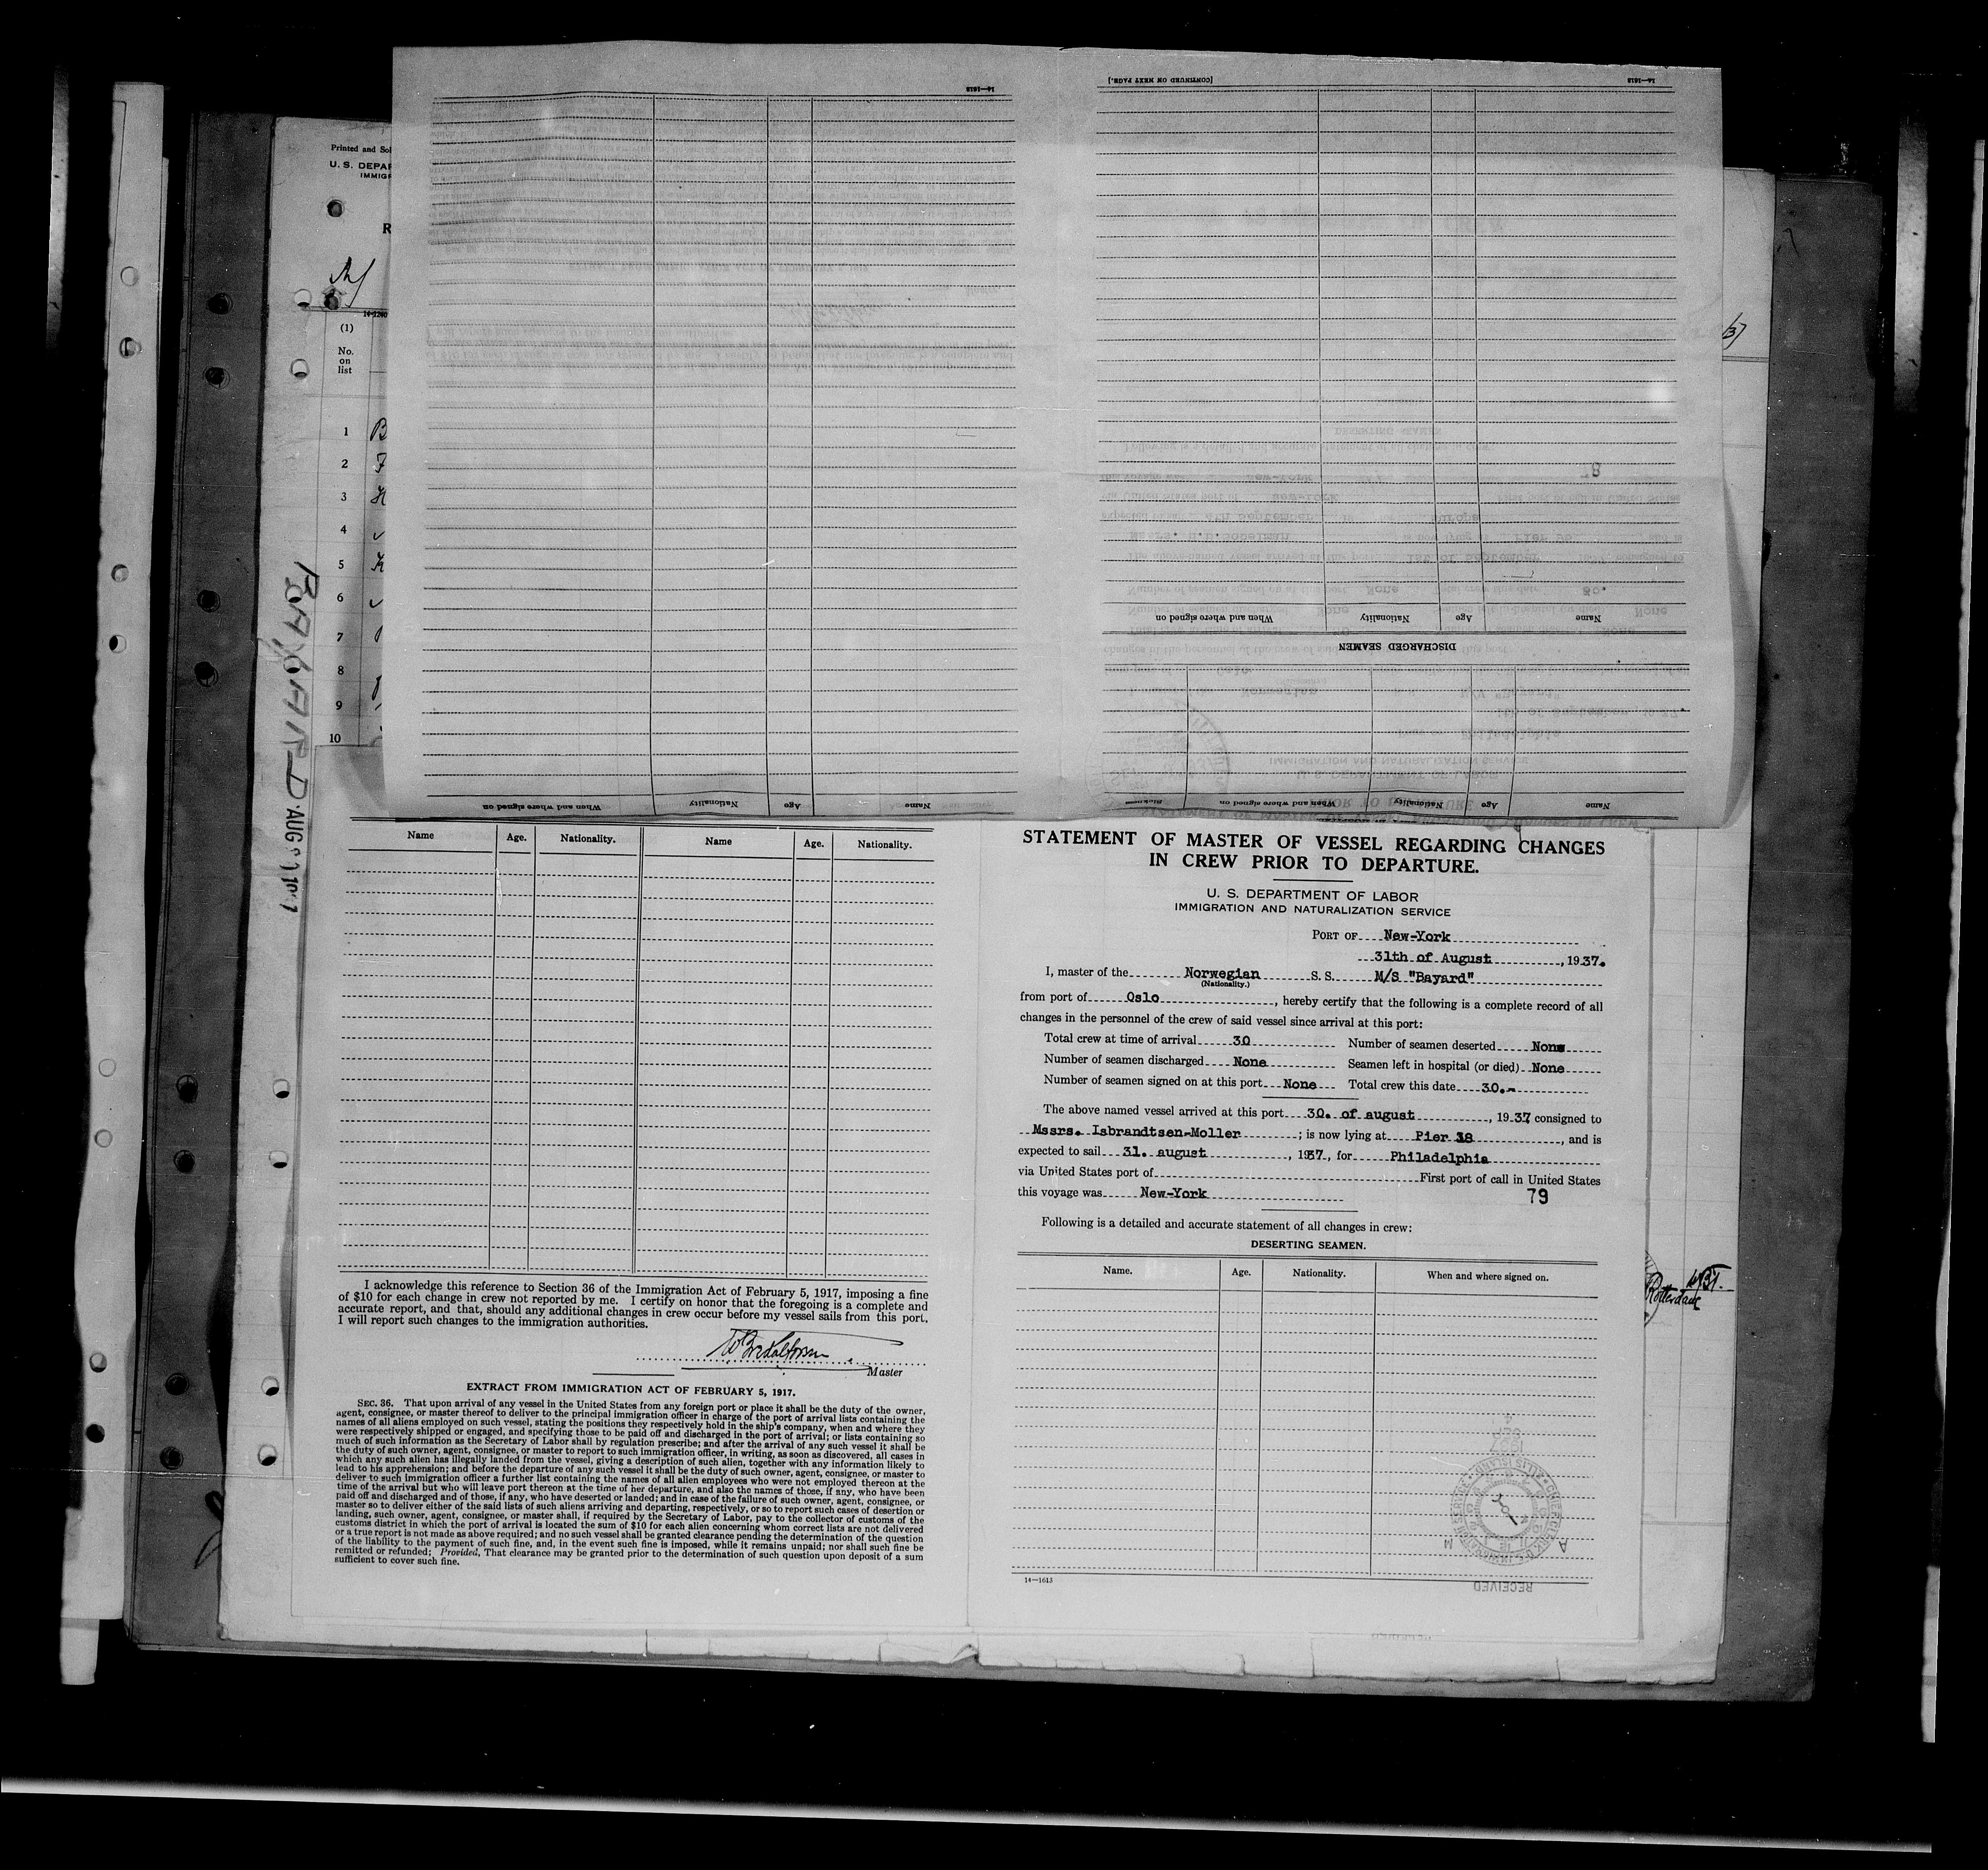 [CONTINUED ON NEXT PAGE.]
14—1613
14—1613
Printed and Sol
U. S. DEPAR
IMMIGR
R
14-1240
(1)
No.
on
list
1
2
3
4
5
6
7
8
9
10
BAYARD AUG
Name Age Nationality When and where signed on
DISCHARGED SEAMEN
Name Age Nationality When and where signed on
Name Age Nationality When and where signed on Sickness
Name Age. Nationality. Name Age. Nationality.
I acknowledge this reference to Section 36 of the Immigration Act of February 5, 1917, imposing a fine
of $10 for each change in crew not reported by me. I certify on honor that the foregoing is a complete and
accurate report, and that, should any additional changes in crew occur before my vessel sails from this port,
I will report such changes to the immigration authorities.
Master
EXTRACT FROM IMMIGRATION ACT OF FEBRUARY 5, 1917.
SEC. 36. That upon arrival of any vessel in the United States from any foreign port or place it shall be the duty of the owner,
agent, consignee, or master thereof to deliver to the principal immigration officer in charge of the port of arrival lists containing the
names of all aliens employed on such vessel, stating the positions they respectively hold in the ship's company, when and where they
were respectively shipped or engaged, and specifying those to be paid off and discharged in the port of arrival; or lists containing so
much of such information as the Secretary of Labor shall by regulation prescribe; and after the arrival of any such vessel it shall be
the duty of such owner, agent, consignee, or master to report to such immigration officer, in writing, as soon as discovered, all cases in
which any such alien has illegally landed from the vessel, giving a description of such alien, together with any information likely to
lead to his apprehension; and before the departure of any such vessel it shall be the duty of such owner, agent, consignee, or master to
deliver to such immigration officer a further list containing the names of all alien employees who were not employed thereon at the
time of the arrival but who will leave port thereon at the time of her departure, and also the names of those, if any, who have been
paid off and discharged and of those, if any, who have deserted or landed; and in case of the failure of such owner, agent, consignee, or
master so to deliver either of the said lists of such aliens arriving and departing, respectively, or so to report such cases of desertion or
landing, such owner, agent, consignee, or master shall, if required by the Secretary of Labor, pay to the collector of customs of the
customs district in which the port of arrival is located the sum of $10 for each alien concerning whom correct lists are not delivered
or a true report is not made as above required; and no such vessel shall be granted clearance pending the determination of the question
of the liability to the payment of such fine, and, in the event such fine is imposed, while it remains unpaid; nor shall such fine be
remitted or refunded; Provided, That clearance may be granted prior to the determination of such question upon deposit of a sum
sufficient to cover such fine.
STATEMENT OF MASTER OF VESSEL REGARDING CHANGES
IN CREW PRIOR TO DEPARTURE.
U. S. DEPARTMENT OF LABOR
IMMIGRATION AND NATURALIZATION SERVICE
PORT OF New-York
31th of August, 1937.
I, master of the Norwegian S. S. M/S "Bayard"
(Nationality.)
from port of Oslo, hereby certify that the following is a complete record of all
changes in the personnel of the crew of said vessel since arrival at this port:
Total crew at time of arrival 30 Number of seamen deserted None
Number of seamen discharged None Seamen left in hospital (or died) None
Number of seamen signed on at this port None Total crew this date 30.-
The above named vessel arrived at this port 30. of august, 1937 consigned to
Mssrs. Isbrandtsen-Moller; is now lying at Pier 38, and is
expected to sail 31. august, 1937, for Philadelphia
via United States port of First port of call in United States
this voyage was New-York 79
Following is a detailed and accurate statement of all changes in crew:
DESERTING SEAMEN.
Name. Age. Nationality. When and where signed on.
14—1613
RECEIVED
Rotterdam